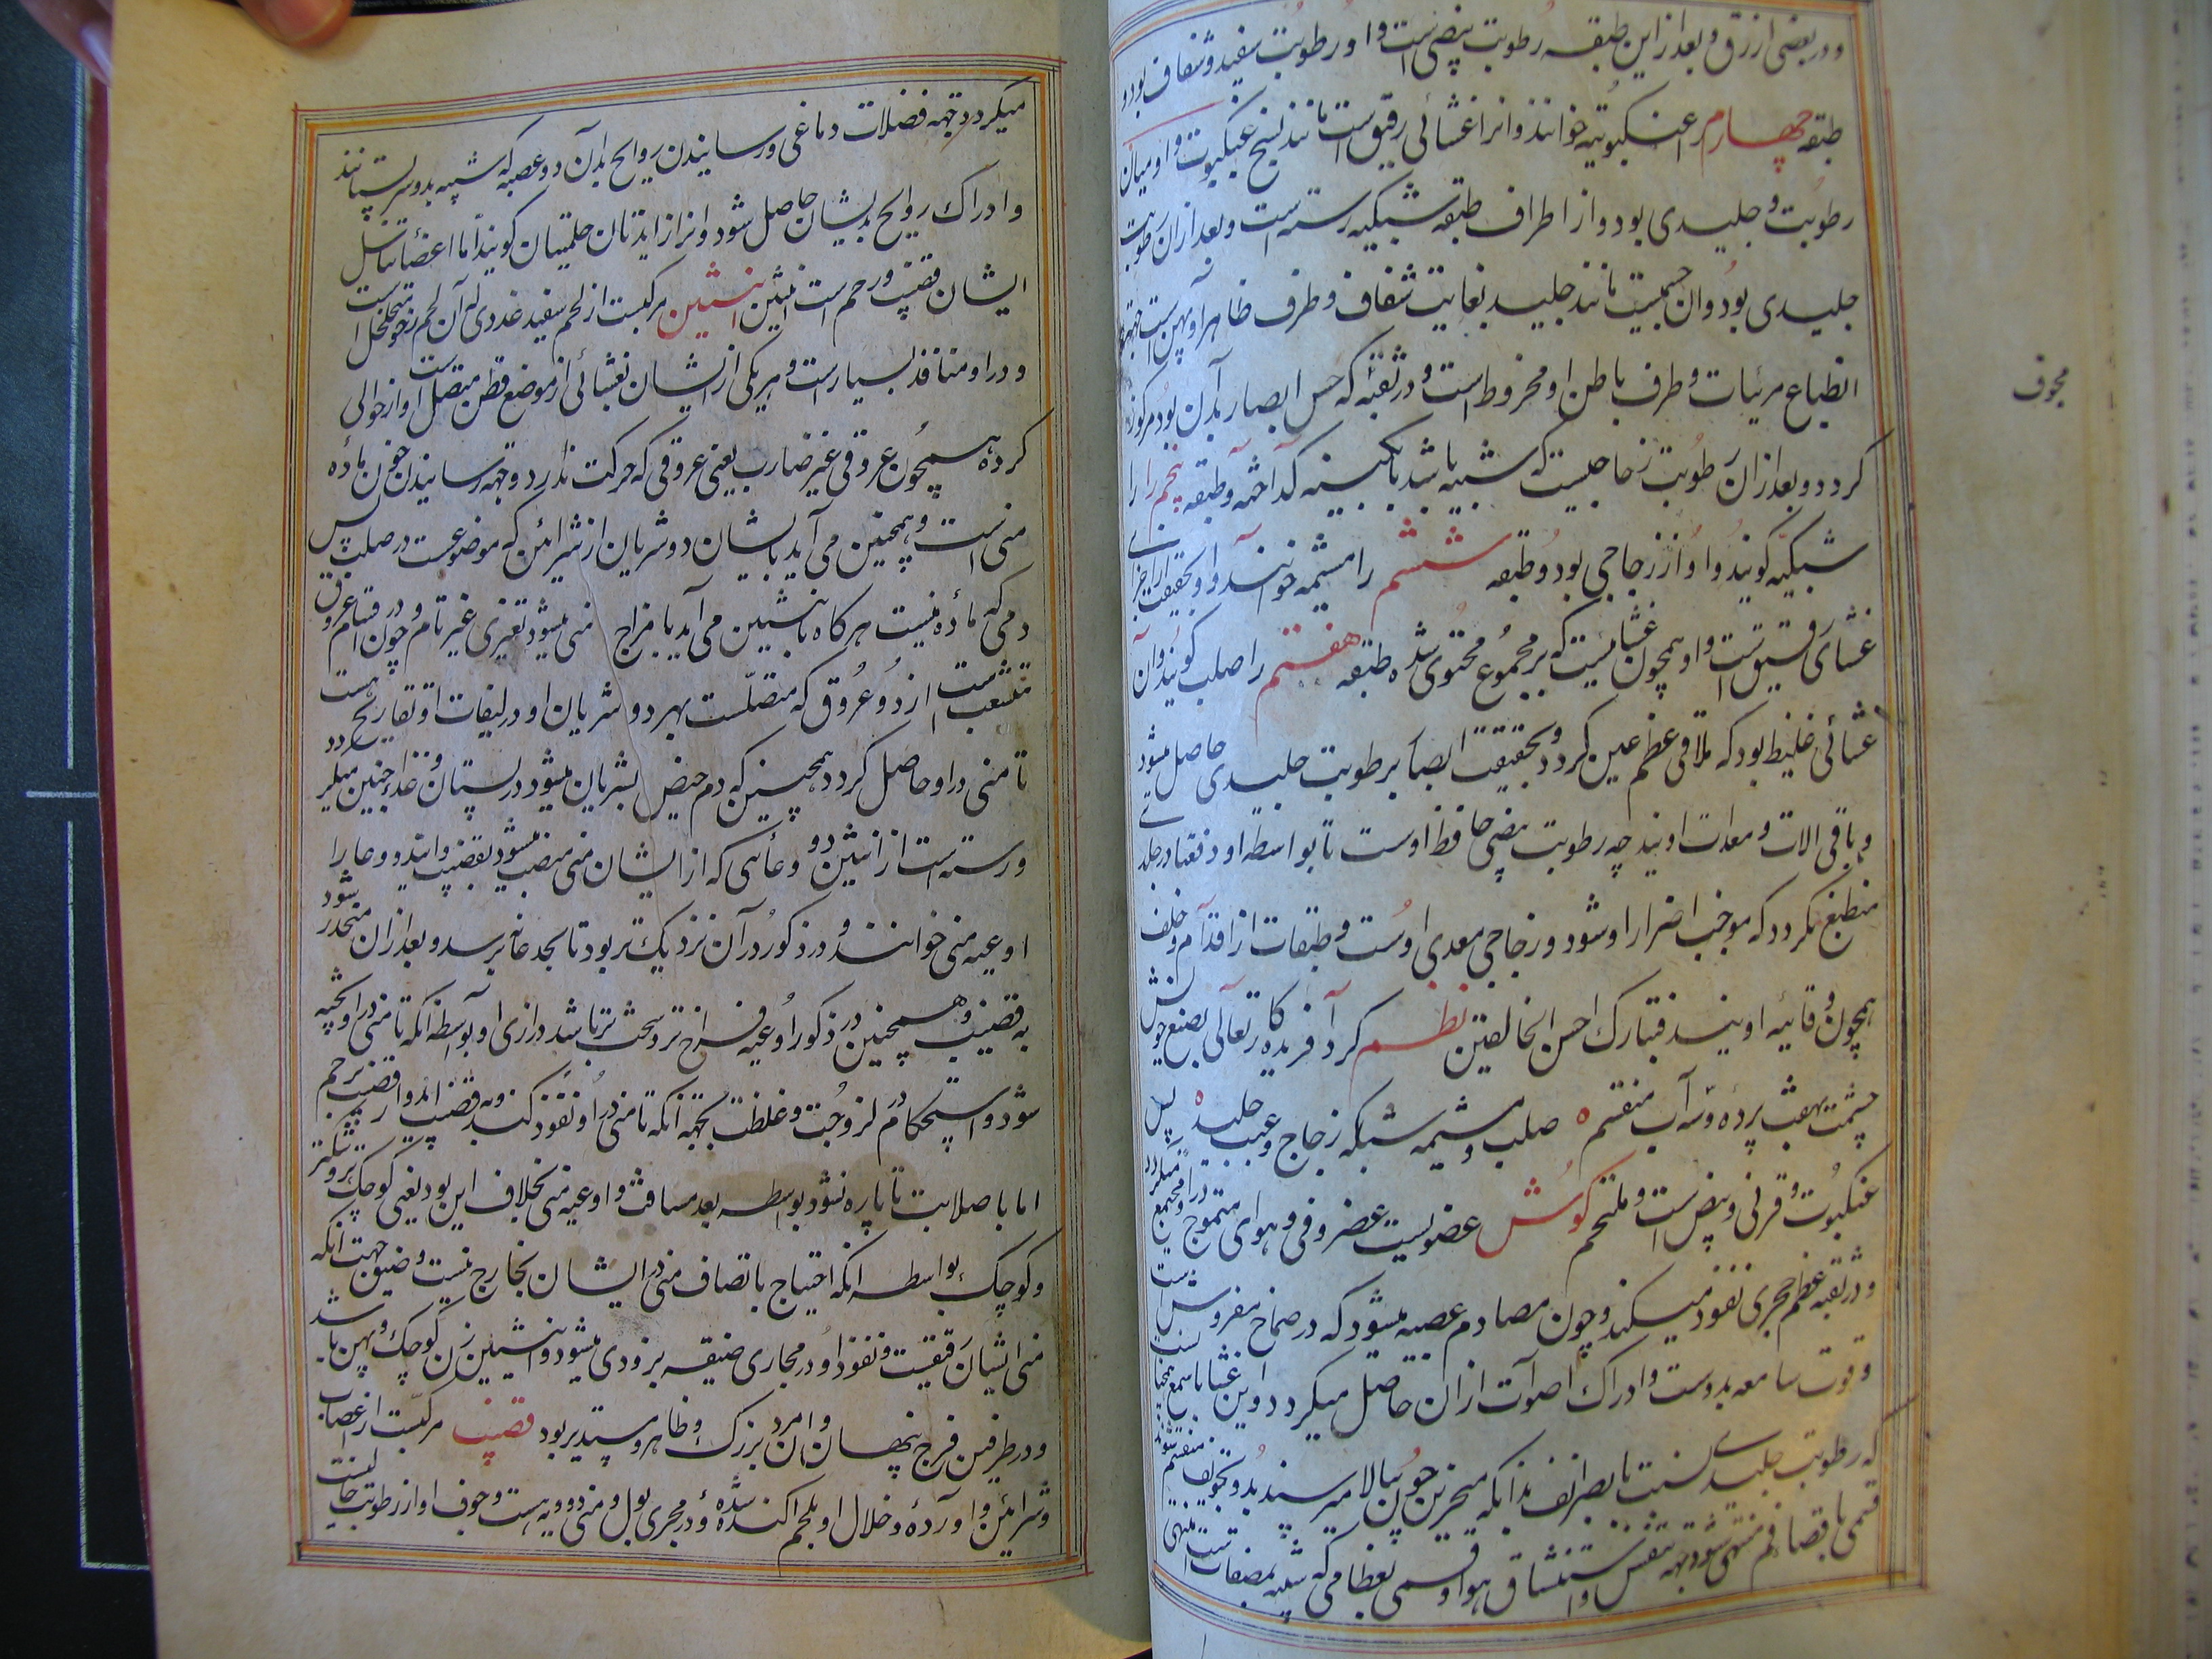 و در بعضی ازرق و بعد از این طبقه رطوبت بیضی است و او رطوبت سفید و شفاف بود و
طبقه چهارم را عنکبوتیه خوانند و انرا غشائی رقیق است مانند نسیج عنکبوت و او میان
رطوبت و جلیدی بود و از اطراف طبقه شبکیه رسته است و بعد ازان رطوبت
جلیدی بود و ان جسمیست مانند جلید بغایت شفاف و طرف ظاهر او پهن است جهة
انطباع مرئیات و طرف باطن او مخروط است و در ثقبه که حس ابصار بدان بود مرکوز
مجوف
کردد و بعد ازان رطوبت زجاجیست که شبیه باشد بابکینه کداخته و طبقه پنجم را
شبکیه کویند و او از زجاجی بود و طبقه ششم را مشیمه خوانند و او بحقیقت
غشای رقیق است و او همچون غشائیست که بر مجموع محتوی شده طبقه هفتم را صلب کویند و آن
غشائی غلیظ بود که ملاقی عظم عین کردد و بحقیقت ابصار برطوبت جلیدی حاصل میشود
و باقی الات و معدات اویند چه رطوبت بیضی حافظ اوست تا بواسطه او دفعة در جلیدی
منطبع نکردد که موجب اضرار او شود و زجاجی معدی اوست و طبقات از اقدام و خلف
همچون وقایه اویند فتبارک احسن الخالقین نظم کرد آفریدکار تعالی بصنع خویش
چشمت بهفت پرده و سه آب منقسم ه صلب و مشیمه شبکه زجاج و عنب جلید ه پس
عنکبوت و قرنی و بیض است و ملتحم کوش عضویست غضروفی و هوای متموج در او مجتمع میکردد
و در ثقبه عظم حجری نفوذ میکند و چون مصادم عصبه میشود که در صماخ مفروش است
و قوت سامعه بدوست و ادراک اصوات ازان حاصل میکردد و این غشا با سمع همچنانست
که رطوبت جلیدی نسبت با بصر انف بدانکه منخرین چون ببالا میرسند بدو تجویف منقسم شوند
قسمی باقصا فم منتهی شود جهة تنفس و استنشاق هوا و قسمی بعظامی که شبیه بمصفات است منتهی
میکردد جهة فضلات دماغی و رسانیدن روایح بدان دو عصبه که شبیه بدو سر پستانند
و ادراک روایح بدیشان حاصل شود و انرا زایدتان حلمتیان کویند اما اعضاء تناسل
ایشان قضیب و رحم است انثیین انثیین مرکبست از لحم سفید غددی که آن لحم رخو متخلخل است
و در او منافذ بسیار است و هر یکی از ایشان بغشائی از موضع قطن متصل است و از حوالی
کرده همچون عروقی غیر ضارب یعنی عروقی که حرکت ندارد و جهة رسانیدن خون ماده
منی است و همچنین می آید بایشان دو شریان از شرایین که موضوعست در صلب پس
دمی که ماده منیست هرکاه بانثیین می آید با مزاج منی میشود تغیری غیر تام و چون اقسام عروق
متشعب است از دو عروق که متصلست بهر دو شریان او در لیفات او تقاریج هست
تا منی در او حاصل کردد همچنین که دم حیض بشریان میشود در پستان و غذاء جنین میکردد
و رسته است از انثیین دو وعائی که از ایشان منی منصب میشود بقضیب و ایندو وعا را
اوعیه منی خوانند و در ذکور در آن نزدیک تر بود تا بحد عانه برسد و بعد ازان منحدر شود
به قضیب و همچنین در ذکور اوعیه فراخ تر و سخت تر باشد درازی او بواسطه انکه تا منی در او پخته
شود و استحکام در لزوجت و غلظت بجهة انکه تا منی در او نفوذ کند و به قضیب اید و از قضیب برحم
اما با صلابت تا پاره نشود بواسطه بعد مسافت و اوعیه منی بخلاف این بود یعنی کوچک تر و تنکتر
و کوچک بواسطه انکه احتیاج باتصاف منی در ایشان بخارج نیست و ضیق جهت انکه
منی ایشان رقیقست و نفوذ او در مجاری ضیقه بزودی میشود و انثیین زن کوچک و پهن باشد
و در طرفین فرج پنهان و ان مرد بزرک و ظاهر و مستدیر بود قضیب مرکبست از اعصاب
و شرایین و اورده و خلال او بلحم اکنده شده و در مجری بول و منی دویه هست و جوف او از رطوبت خالیست